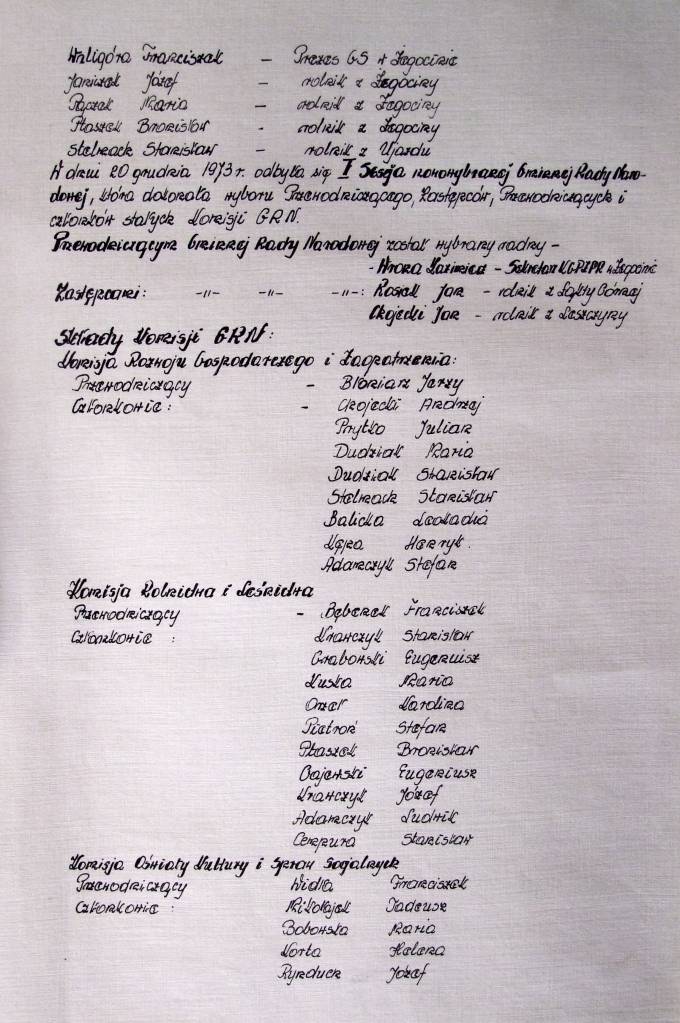 Waligóra Franciszek - Prezes GS w Żegocinie
Janiczek Józef - rolnik z Żegociny
Pączek Maria - rolnik z Żegociny
Ptaszek Bronisław - rolnik z Żegociny
Stelmach Stanisław - rolnik z Ujazdu
W dniu 20 grudnia 1973 r. odbyła się I Sesja nowowybranej Gminnej Rady Naro-
dowej, która dokonała wyboru Przewodniczącego, Zastępców, Przewodniczących i
członków stałych Komisji GRN.
Przewodniczącym Gminnej Rady Narodowej został wybrany radny -
- Wrona Kazimierz - Sekretarz KG PZPR w Żegocinie
Zastępcami: -"- -"- -"-: Rosiek Jan - rolnik z Łąkty Górnej
Chojecki Jan - rolnik z Leszczyny
Składy Komisji GRN:
Komisja Rozwoju Gospodarczego i Zaopatrzenia:
Przewodniczący - Błoniarz Jerzy
Członkowie: - Chojecki Andrzej
Przytko Julian
Dudziak Maria
Dudziak Stanisław
Stelmach Stanisław
Balicka Leokadia
Kępa Henryk.
Adamczyk Stefan
Komisja Rolnictwa i Leśnictwa
Przewodniczący - Bębenek Franciszek
Członkowie : Krawczyk Stanisław
Grabowski Eugeniusz
Kuska Maria
Orzeł Karolina
Piotroń Stefan
Ptaszek Bronisław
Gajewski Eugeniusz
Krawczyk Józef
Adamczyk Ludwik
Cempura Stanisław
Komisja Oświaty Kultury i Spraw Socjalnych
Przewodniczący Widła Franciszek
Członkowie : Mikołajek Tadeusz
Bobowska Maria
Korta Helena
Rynduch Józef